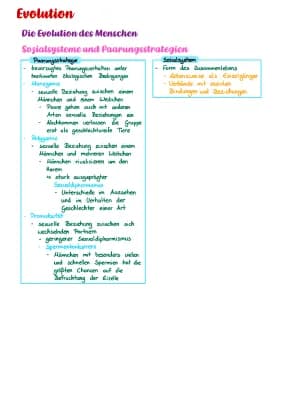 Evolution
Die Evolution des Menschen
Sozialsysteme und Paarungsstrategien
Paarungsstrategie
- bevorzugtes Paarungsverhalten unter
bestimmten ökologischen Bedingungen
- Monogamie
- sexuelle Beziehung zwischen einem
Männchen und einem Weibchen
- Paare gehen auch mit anderen
Arten sexuelle Beziehungen ein
- Nachkommen verlassen die Gruppe
erst als geschlechtsreife Tiere
- Polygynie
- sexuelle Beziehung zwischen einem
Männchen und mehreren Weibchen
- Männchen rivalisieren um den
Harem
→ stark ausgeprägter
Sexualdiphormismus
- Unterschiede im Aussehen
und im Verhalten der
Geschlechter einer Art
- Promiskuität
- sexuelle Beziehung zwischen sich
wechselnden Partnern
- geringerer Sexualdiphormismus
- Spermienkonkurrenz
- Männchen mit besonders vielen
und schnellen Spermien hat die
größten Chancen auf die
Befruchtung der Eizelle
Sozialsystem
- Form des Zusammenlebens
- Lebensweise als Einzelgänger
- Verbände mit sozialen
Bindungen und Beziehungen